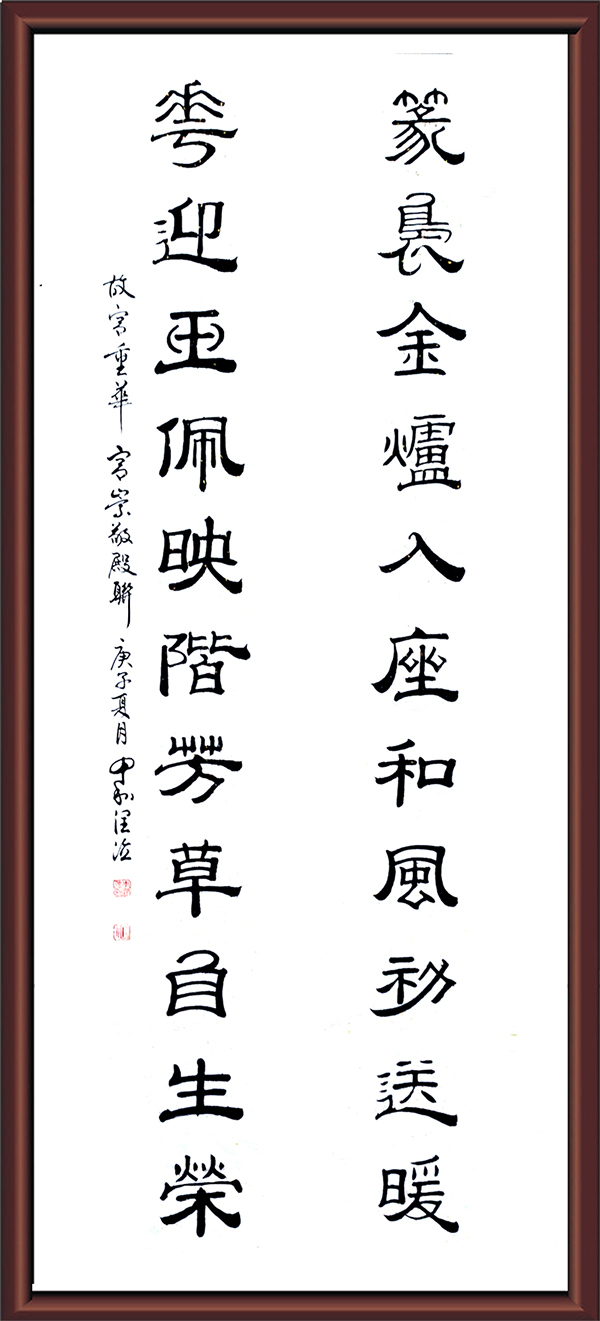 篆裊金爐入座和風初送暖
華迎玉佩映階芳草自生榮
故宮重華宮崇敬殿聯 庚子夏月